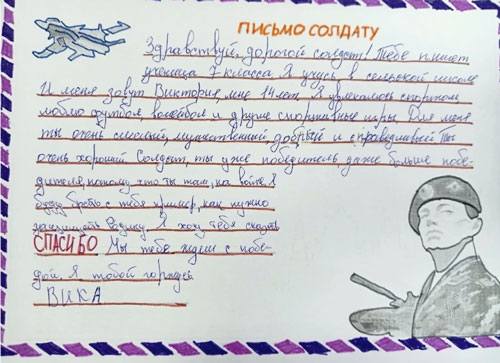 ПИСЬМО СОЛДАТУ
Здравствуй, дорогой солдат! Тебе пишет
ученица 7 класса. Я учусь в сельской школе
И меня зовут Виктория, мне 14 лет. Я увлекаюсь спортом
люблю футбол, волейбол и другие спортивные игры. Для меня
ты очень смелый, мужественный добрый и справедливый Ты
очень хороший Солдат, ты уже победитель даже больше побе-
дителя, потому что ты там, на войне. Я
буду брать с тебя пример, как нужно
защищать Родину. Я хочу тебе сказать
СПАСИБО Мы тебя ждем с побе-
дой. Я тобой горжусь
ВИКА